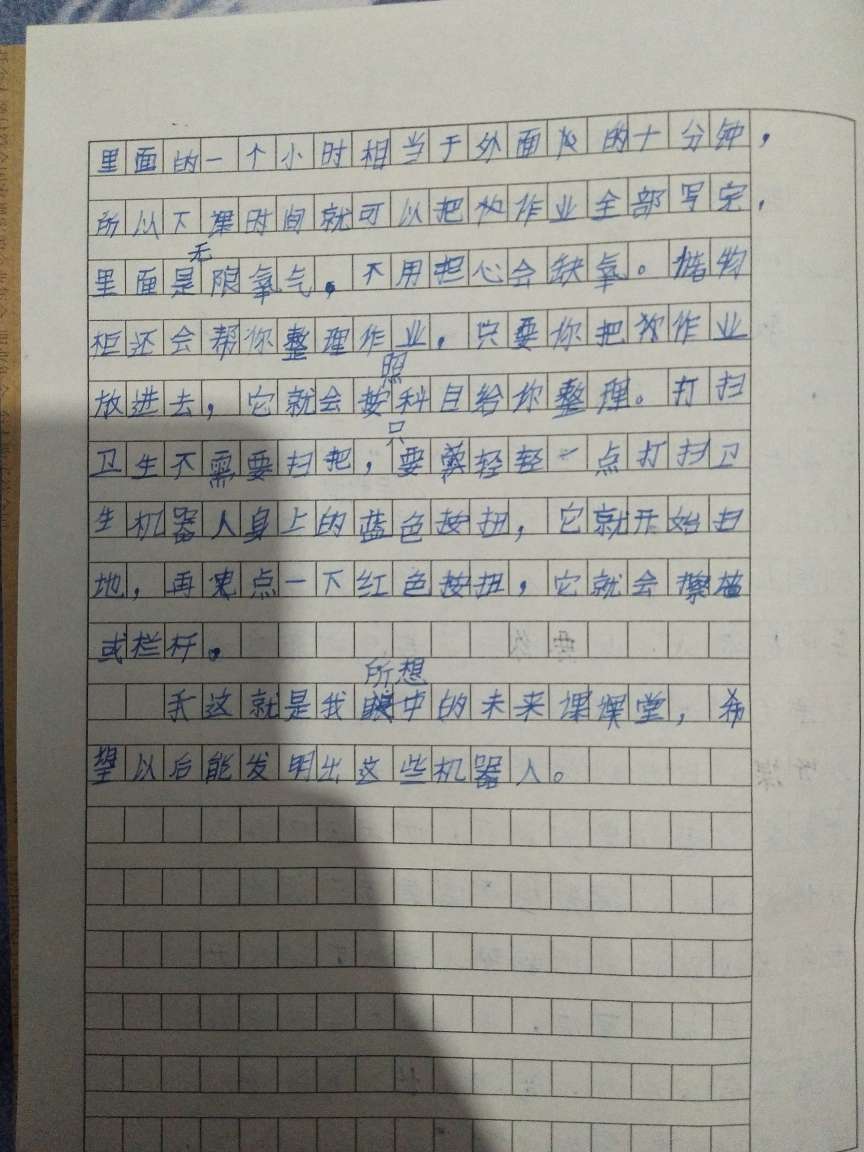 里面的一个小时相当于外面的十分钟，
所以下课时间就可以把作业全部写完，
里面是无限氧气，不用担心会缺氧。储物
柜还会帮你整理作业，只要你把作业
放进去，它就会按照科目给你整理。打扫
卫生不需要扫把，只要轻轻一点打扫卫
生机器人身上的蓝色按扭，它就开始扫
地，再点一下红色按扭，它就会擦墙
或栏杆。
这就是我所想中的未来课堂，希
望以后能发明出这些机器人。